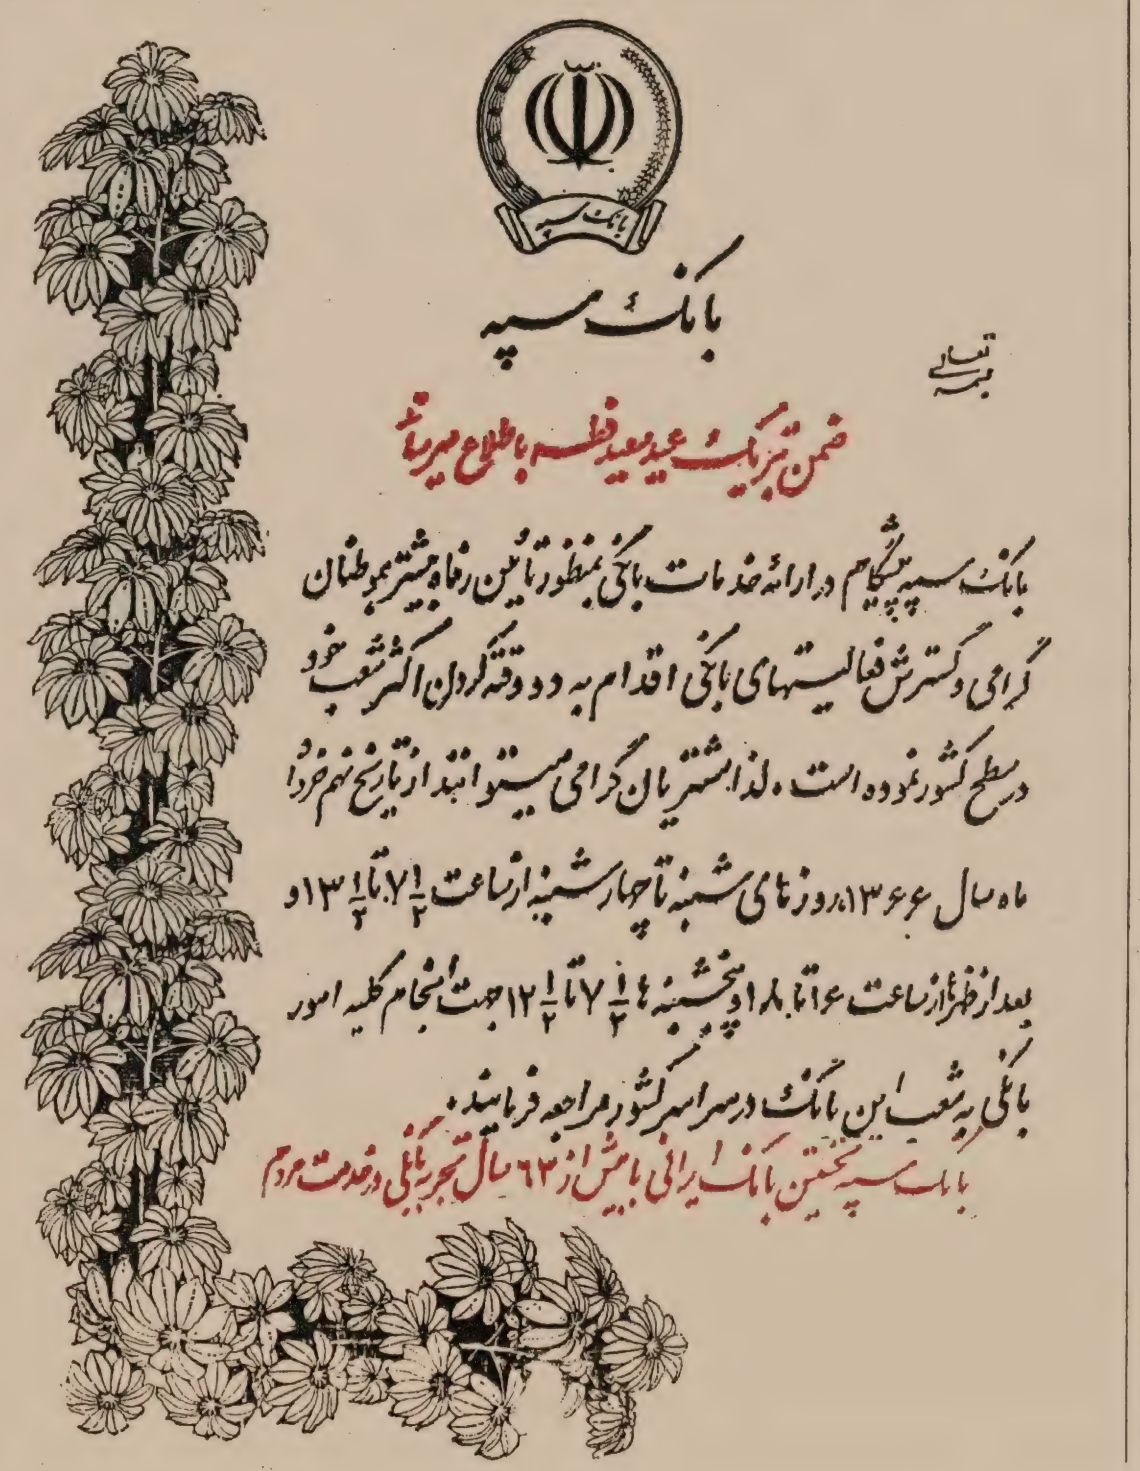 بانک سپه
بانک سپه
بسمه تعالی
ضمن تبریک عید سعید فطر باطلاع میرساند
بانک سپه پیشگام در ارائه خدمات بانکی بمنظور تأمین رفاه بیشتر هموطنان
گرامی و گسترش فعالیتهای بانکی اقدام به دو وقته کردن اکثر شعب خود
در سطح کشور نموده است . لذا مشتریان گرامی میتوانند از تاریخ نهم خرداد
ماه سال ۱۳۶۶، روزهای شنبه تا چهارشنبه از ساعت ۷ ۱/۲ تا ۱۳ ۱/۲ و
بعد از ظهرها از ساعت ۱۶ تا ۱۸ و پنجشنبه ها ۷ ۱/۲ تا ۱۲ ۱/۲ جهت انجام کلیه امور
بانکی به شعب این بانک در سراسر کشور مراجعه فرمایند .
بانک سپه نخستین بانک ایرانی با بیش از ۶۳ سال تجربه بانکی در خدمت مردم